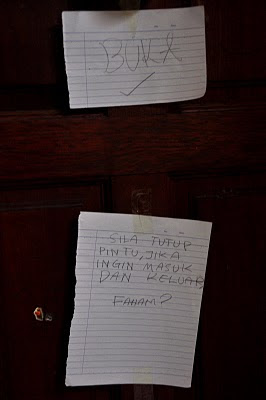 BUKA
SILA TUTUP
PINTU, JIKA
INGIN MASUK
DAN KELUAR
FAHAM?